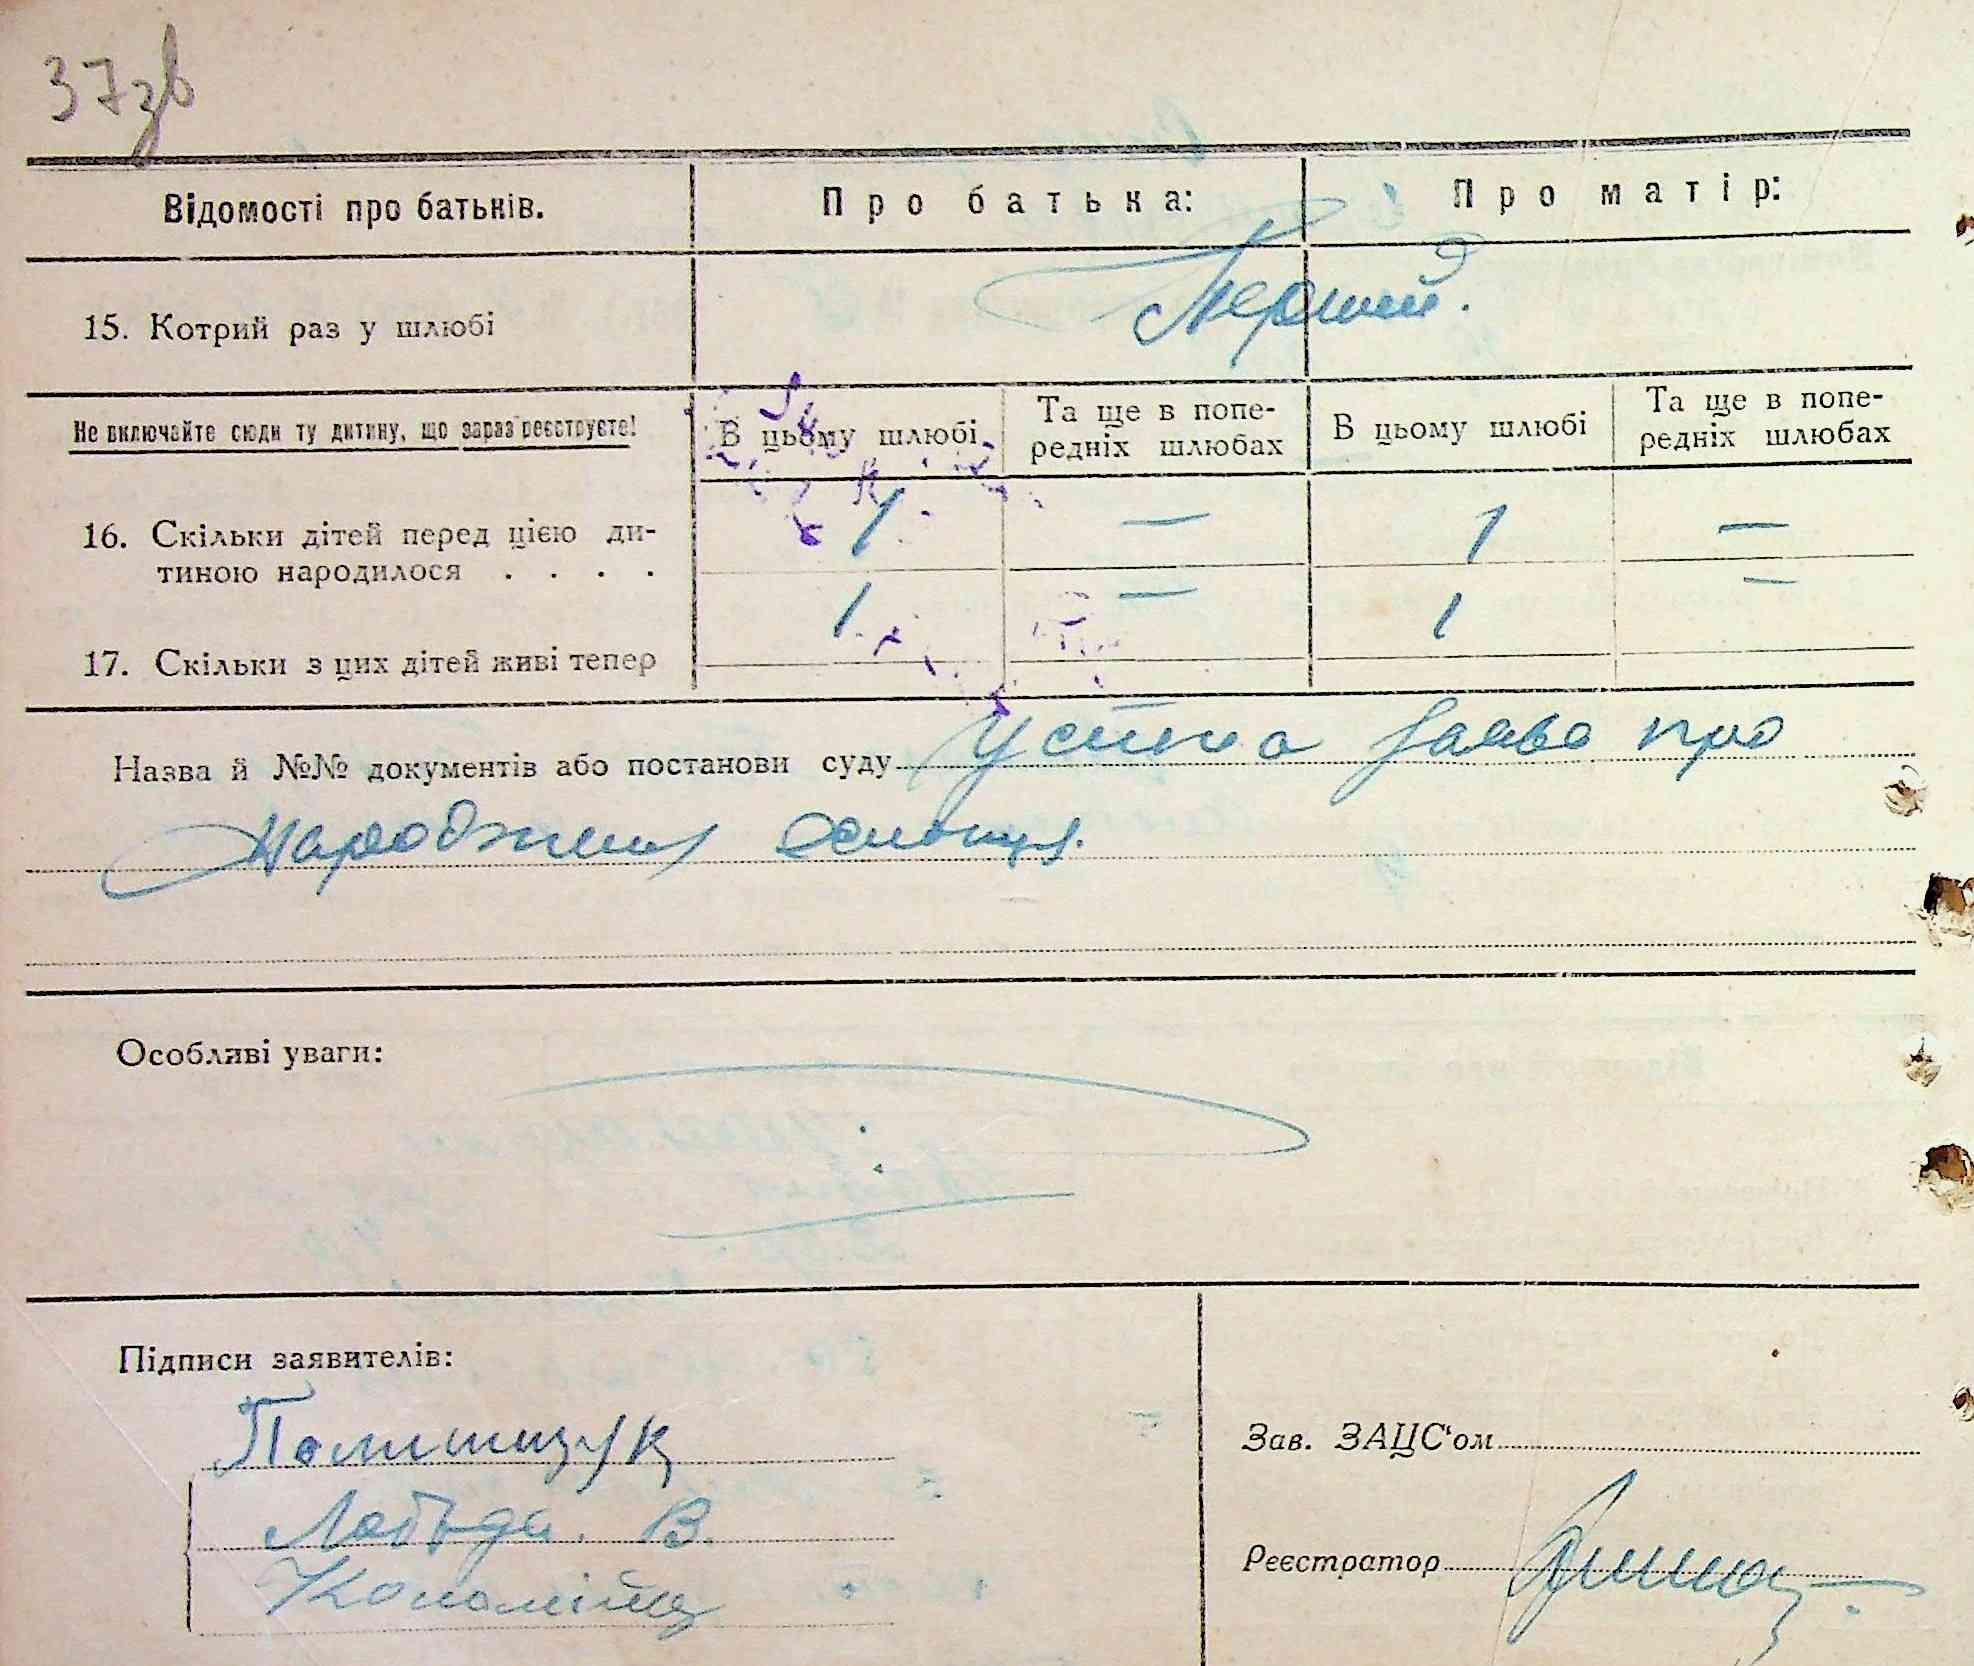 37зв
Відомості про батьків. Про батька: Про матір:
15. Котрий раз у шлюбі Перший.
Не включайте сюди ту дитину, що зараз реєструєте! В цьому шлюбі Та ще в попе-
редніх шлюбах В цьому шлюбі Та ще в попе-
редніх шлюбах
16. Скільки дітей перед цією ди-
тиною народилося . . . . 1 — 1 —
17. Скільки з цих дітей живі тепер 1 — 1 —
Назва й №№ документів або постанови суду Устна заява про
народження хлопця.
Особливі уваги:
Підписи заявителів:
Полищук
Лебеда. В.
Коломієц
Зав. ЗАЦС'ом
Реєстратор